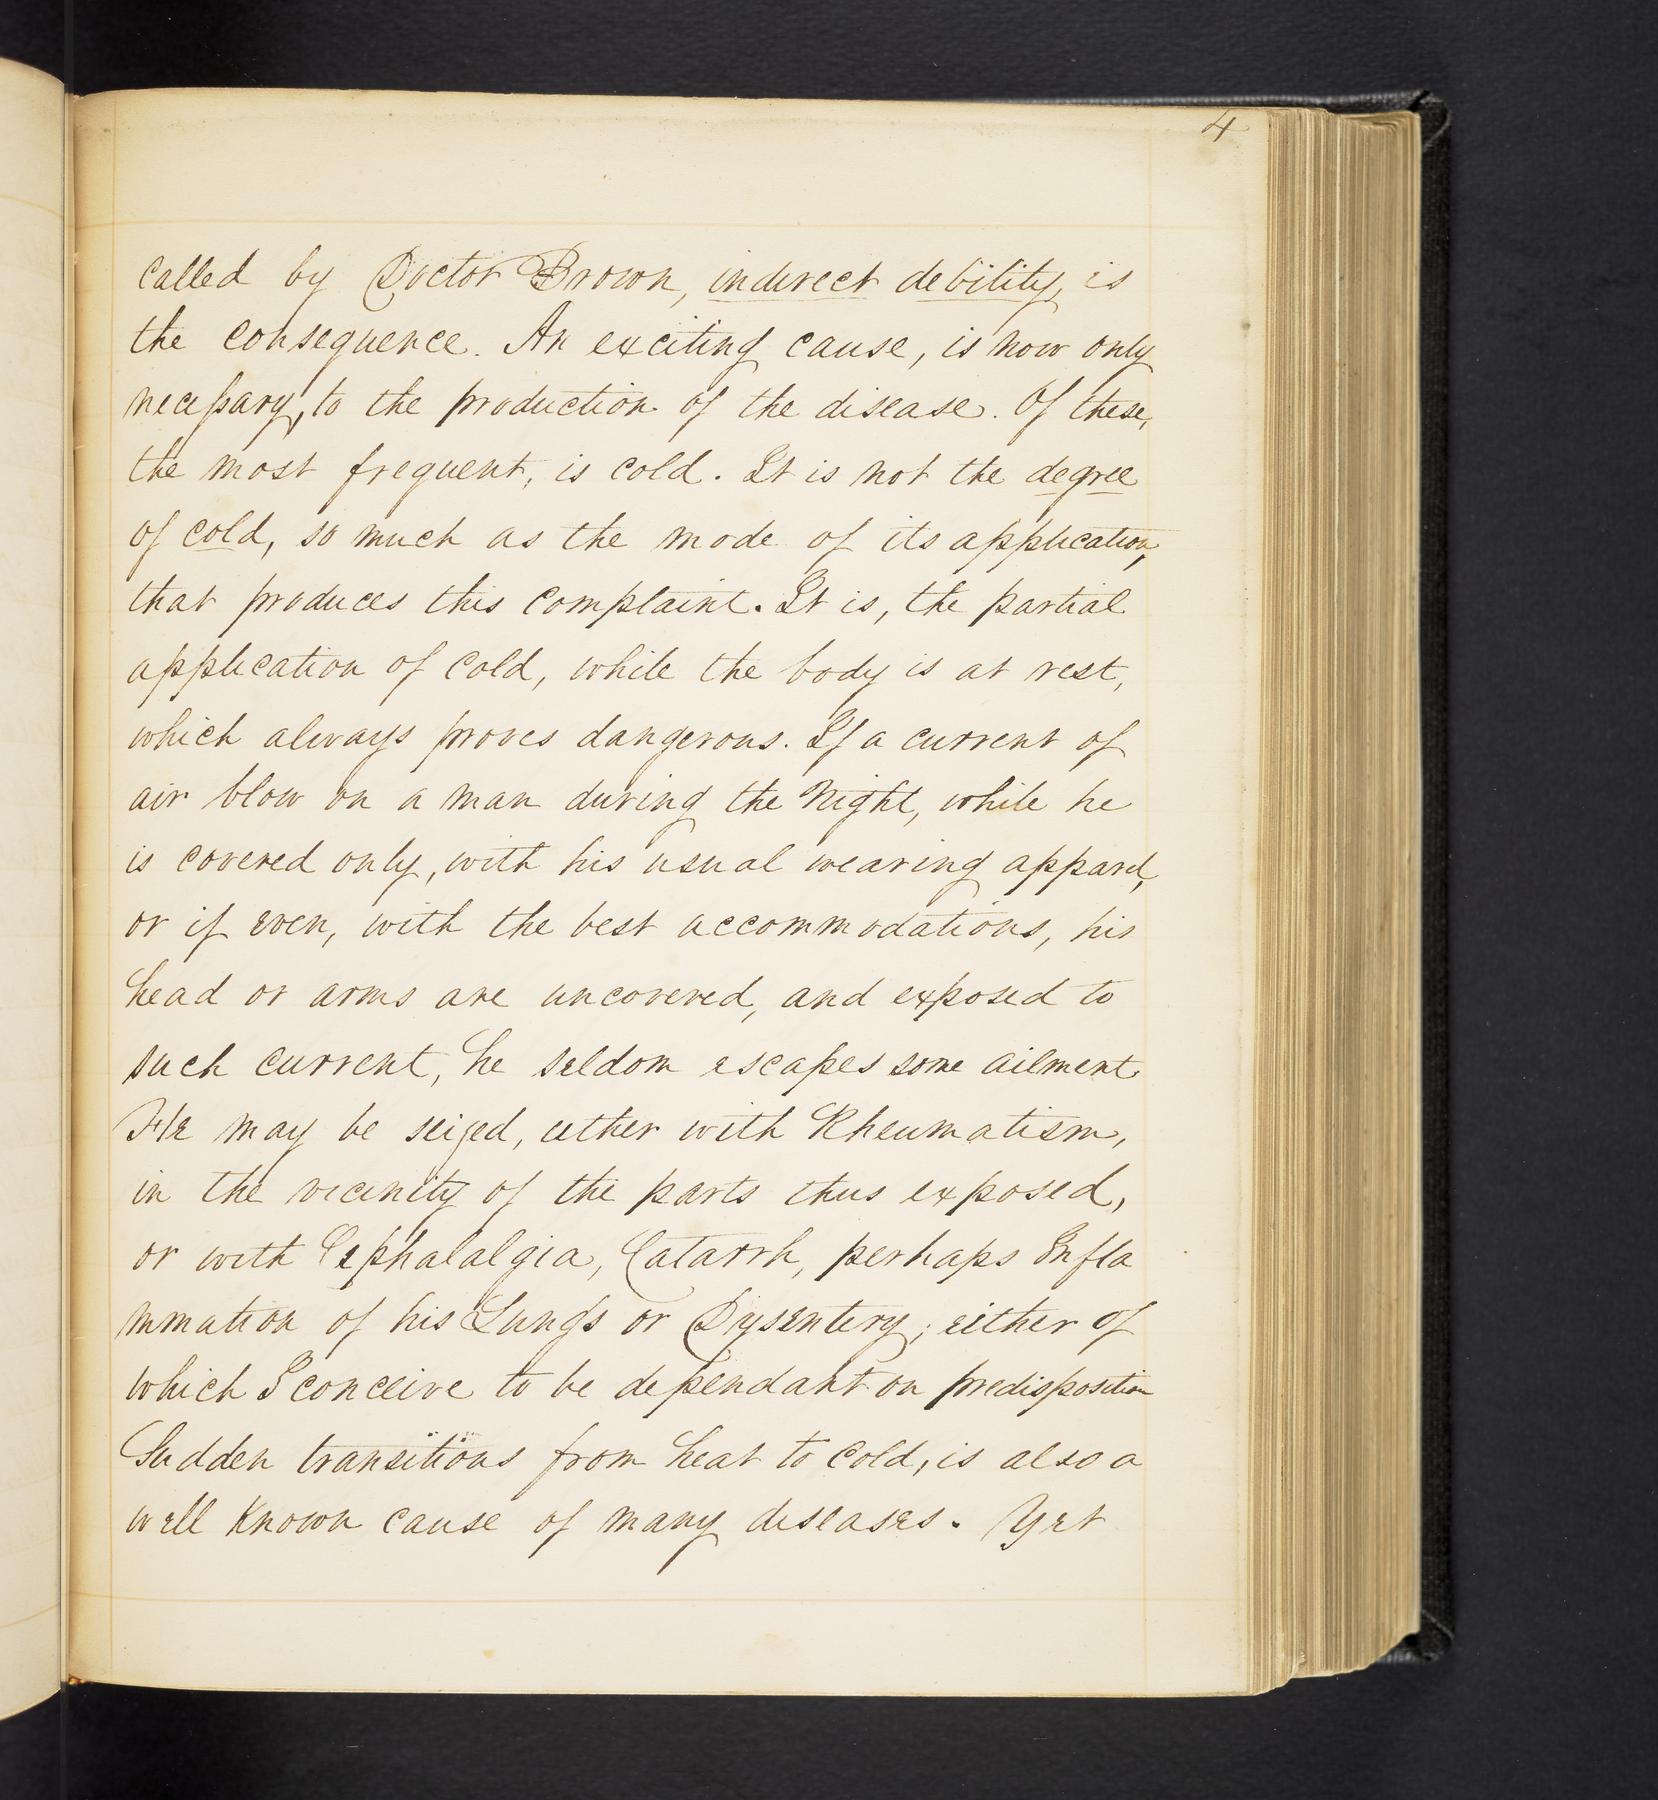 4
called by Doctor Brown, indirect debility, is
the consequence. An exciting cause, is now only
neceſsary, to the production of the disease. Of these,
the most frequent, is cold. It is not the degree
of cold, so much as the mode of its application,
that produces this complaint. It is, the partial
application of cold, while the body is at rest,
which always proves dangerous. If a current of
air blow on a man during the Night, while he
is covered only, with his usual wearing apparel,
or if even, with the best accommodations, his
head or arms are uncovered, and exposed to
such current, he seldom escapes some ailment
He may be seized, either with Rheumatism,
in the vicinity of the parts thus exposed,
or with Cephalalgia, Catarrh, perhaps Infla
mmation of his Lungs or Dysentery; either of
which I conceive to be dependant on predisposition
Sudden transitions from heat to cold, is also a
well known cause of many diseases. Yet